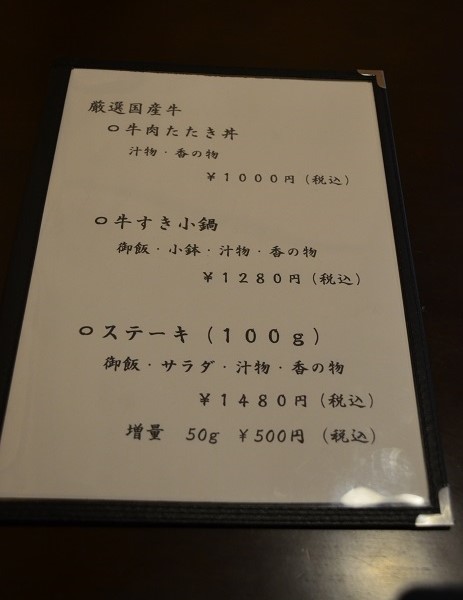 厳選国産牛
○牛肉たたき丼
汁物・香の物
￥1000円（税込）
○牛すき小鍋
御飯・小鉢・汁物・香の物
￥1280円（税込）
○ステーキ（100g）
御飯・サラダ・汁物・香の物
￥1480円（税込）
増量　50g　￥500円　（税込）